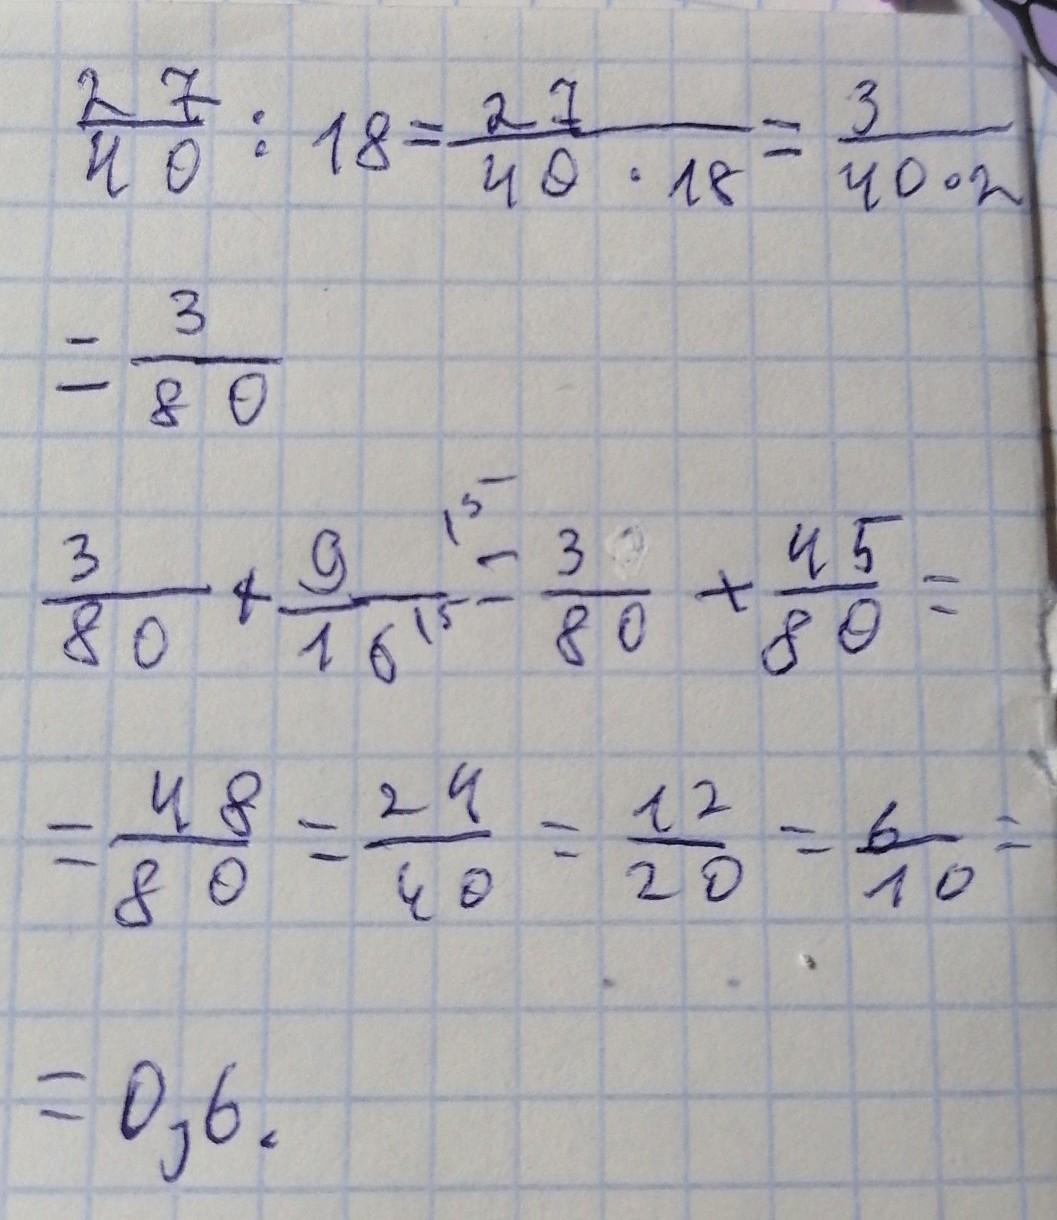 27/40 : 18 = 27/(40 · 18) = 3/(40 · 2)
= 3/80
3/80 + 9/16 ^(15/15) = 3/80 + 45/80 =
= 48/80 = 24/40 = 12/20 = 6/10 =
= 0,6.